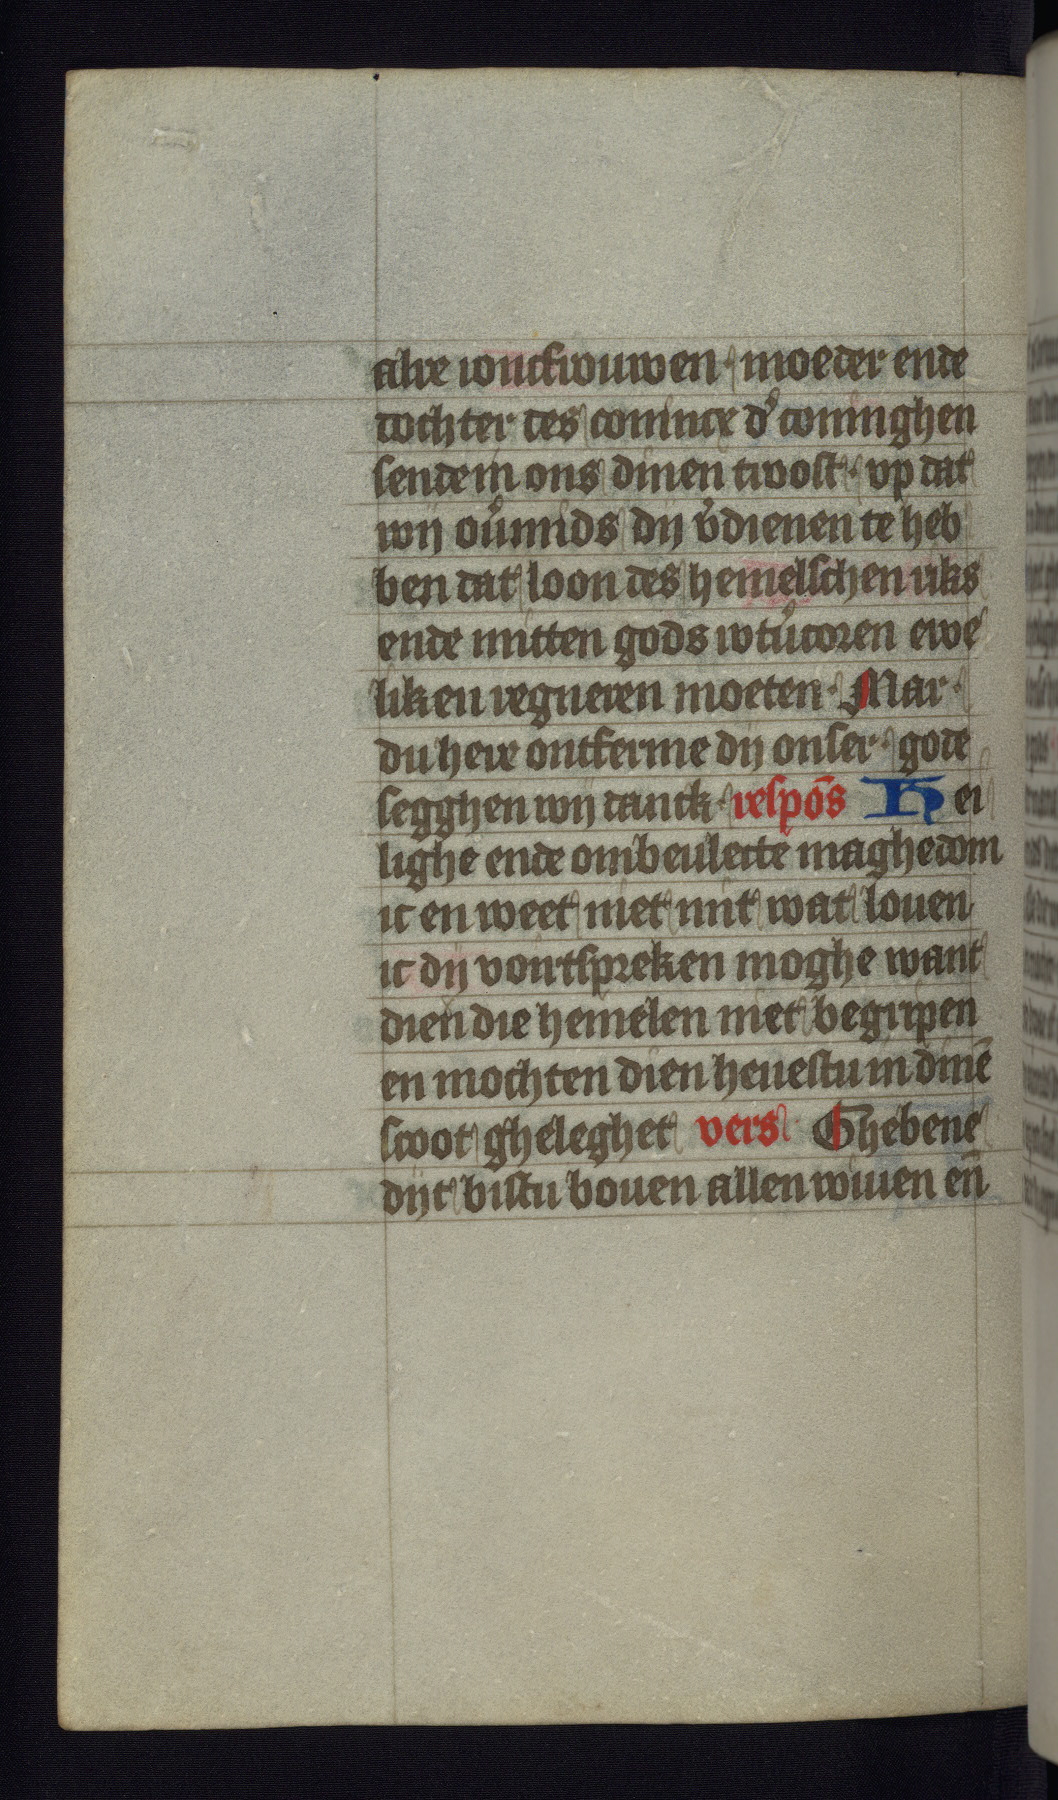 alre ionckfrouwen · moeder ende
dochter des conincx d' coninghen
sendein ons dinen troost · vp dat
wij ou̓mids dij v̓dienen te heb
ben dat loon des hemelschen riks
ende mitten gods wtu̓coren ewe
liken regneren moeten · Mar ·
du here ontferme dij onser · gode
segghen wij danck · respōs Hei
lighe ende ombeulecte maghedom
ic en weet niet mit wat louen
ic dij voirtspreken moghe want
dien die hemelen niet begripen
en mochten dien heuestu in dinē
scoot gheleghet vers Ghebene
dijt bistu bouen allen wiuen en̄